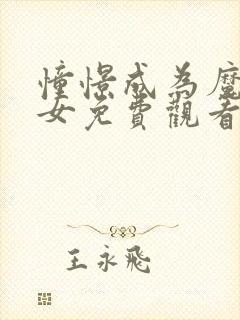 憧憬成為魔
女免費觀看
王永飛